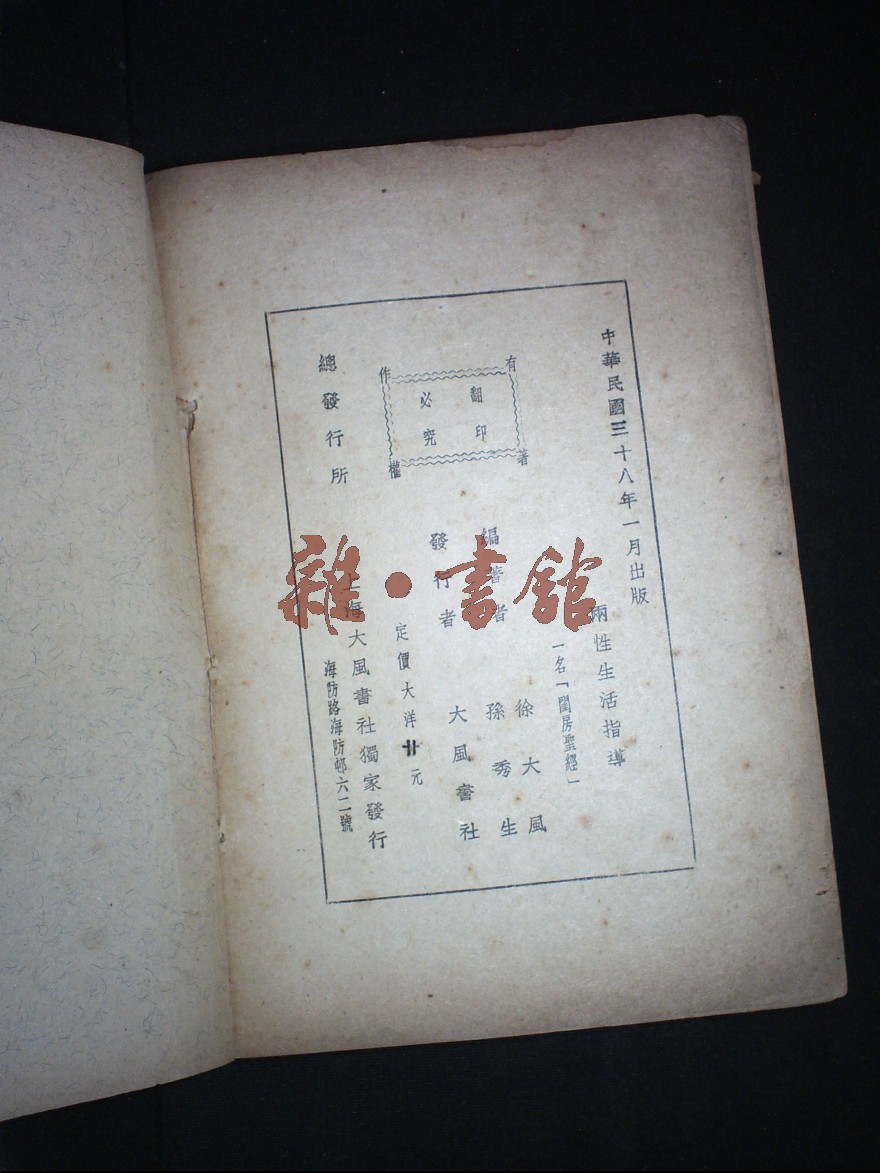 中華民國三十八年一月出版
兩性生活指導
一名「閨房聖經」
編著者 徐大風
孫秀生
發行者 大風書社
有著作權
翻印必究
定價大洋廿元
總發行所 上海大風書社獨家發行
海防路海防邨六二號
雜·書館